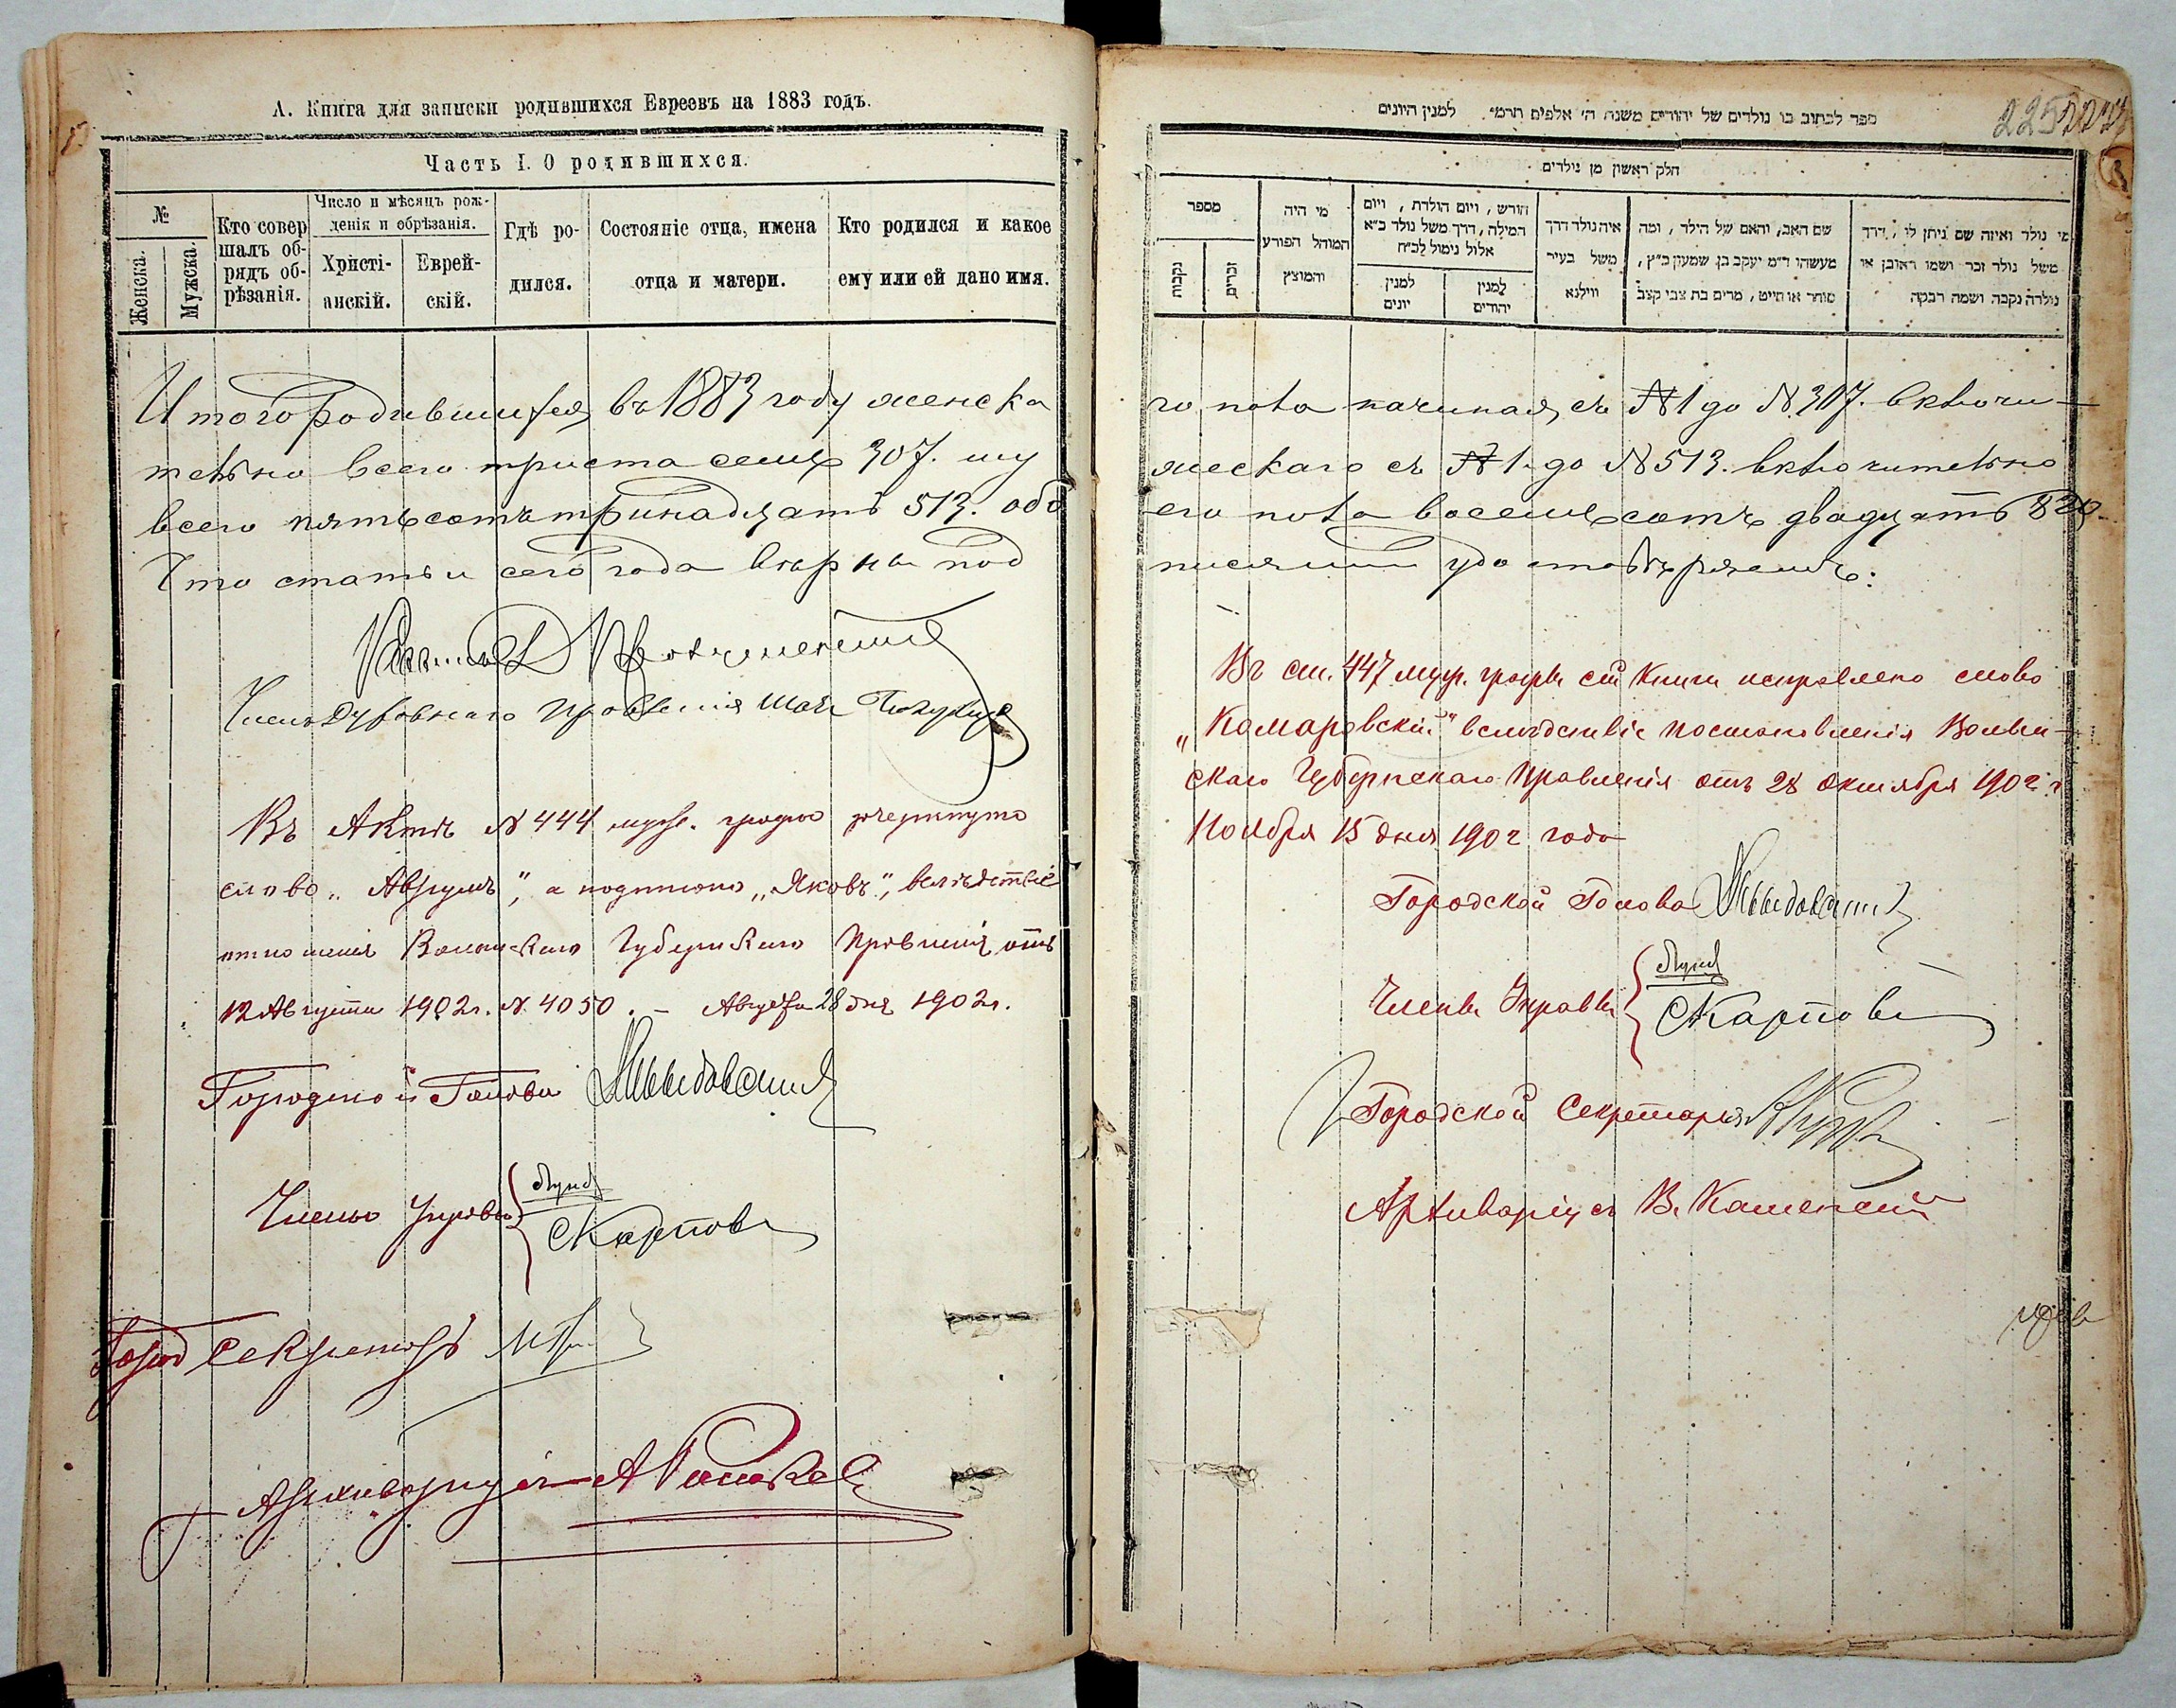 А. Книга для записки родившихся Евреевъ на 1883 годъ.
Часть I. О родившихся.
№
Женска.
Мужска.
Кто совер
шалъ об-
рядъ об-
рѣзанія.
Число и мѣсяцъ рож-
денія и обрѣзанія.
Христі-
анскій.
Еврей-
скій.
Гдѣ ро-
дился.
Состояніе отца, имена
отца и матери.
Кто родился и какое
ему или ей дано имя.
Итого родившихся въ 1883 году женска
тельно всего триста семь 307. му
всего пятьсотъ тринадцать 513. обо
Что статьи сего года вѣрны под
Членъ Духовнаго Правленія
Въ Актѣ № 444 муж. графы зачеркнуто
слово „Аврумъ", а надписано „Яковъ", вслѣдствіе
отношенія Волынскаго Губернскаго Правленія отъ
12 Августа 1902 г. № 4050. – Августа 28 дня 1902 г.
Городской Голова
Члены Управы
СКарповъ
Город Секретарь
Архиваріусъ
ספר לכתוב בו נולדים של יהודים משנת ה' אלפים תרמ" למנין היונים
225
חלק ראשון מן נולדים
מספר
נקבות
זכרים
מי היה
המוהל הפורע
והמוצץ
חורש, ויום הולדת, ויום
המילה, דרך משל נולד כ"א
אלול נימול לכ"ח
למנין
יונים
למנין
יהודים
איה נולד דרך
משל בעיר
ווילנא
שם האב, והאם של הילד, ומה
מעשהו ד"מ יעקב בן שמעון כ"ץ,
סוחר או חייט, מרים בת צבי קצב
מי נולד ואיזה שם ניתן לו, דרך
משל נולד זכר ושמו ראובן או
נולדה נקבה ושמה רבקה
го пола начиная съ №1 до №307. включи–
жескаго съ №1. до №513. включительно
его пола восемьсотъ двадцать 820
писями удостовѣряемъ:
Въ ст. 447 муж. графы сей Книги исправлено слово
„Комаровскій" вслѣдствіе постановленія Волын–
скаго Губернскаго Правленія отъ 28 Октября 1902 г
Ноября 15 дня 1902 года
Городской Голова
Члены Управы
СКарповъ
Городской Секретарь
Архиваріусъ В. Каменскій